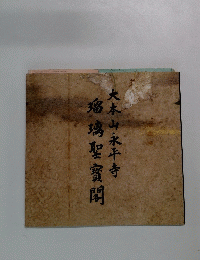 大本山永平寺
瑠璃聖寳閣